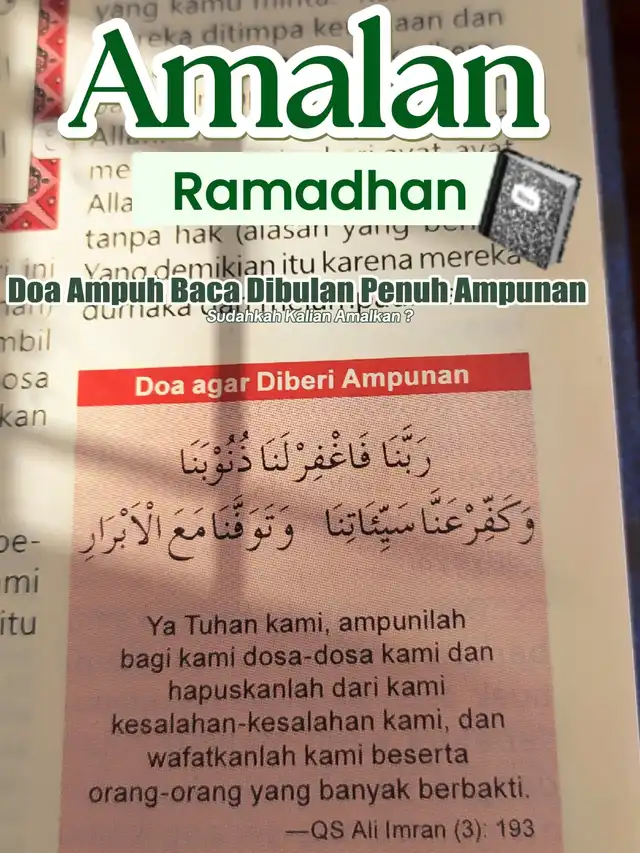 yang kamu minta
reka ditimpa
aan dan
Amalan
Alla
Ramadhan
me
Alla
tanpa hak (alasan yang
ini
Yang demikian itu karena mereka
Doa Ampuh Baca Dibulan Penuh Ampunan
Sudahkah Kalian Amalkan ?
durhaka
mbil
osa
kan
Doa agar Diberi Ampunan
رَبَّنَا فَاغْفِرْلَنَا ذُنُوْبَنَا
وَكَفِّرْعَنَّا سَيِّئَاتِنَا وَتَوَفَّنَا مَعَ الْاَبْرَارِ
be-
mi
itu
Ya Tuhan kami, ampunilah
bagi kami dosa-dosa kami dan
hapuskanlah dari kami
kesalahan-kesalahan kami, dan
wafatkanlah kami beserta
orang-orang yang banyak berbakti.
—QS Ali Imran (3): 193